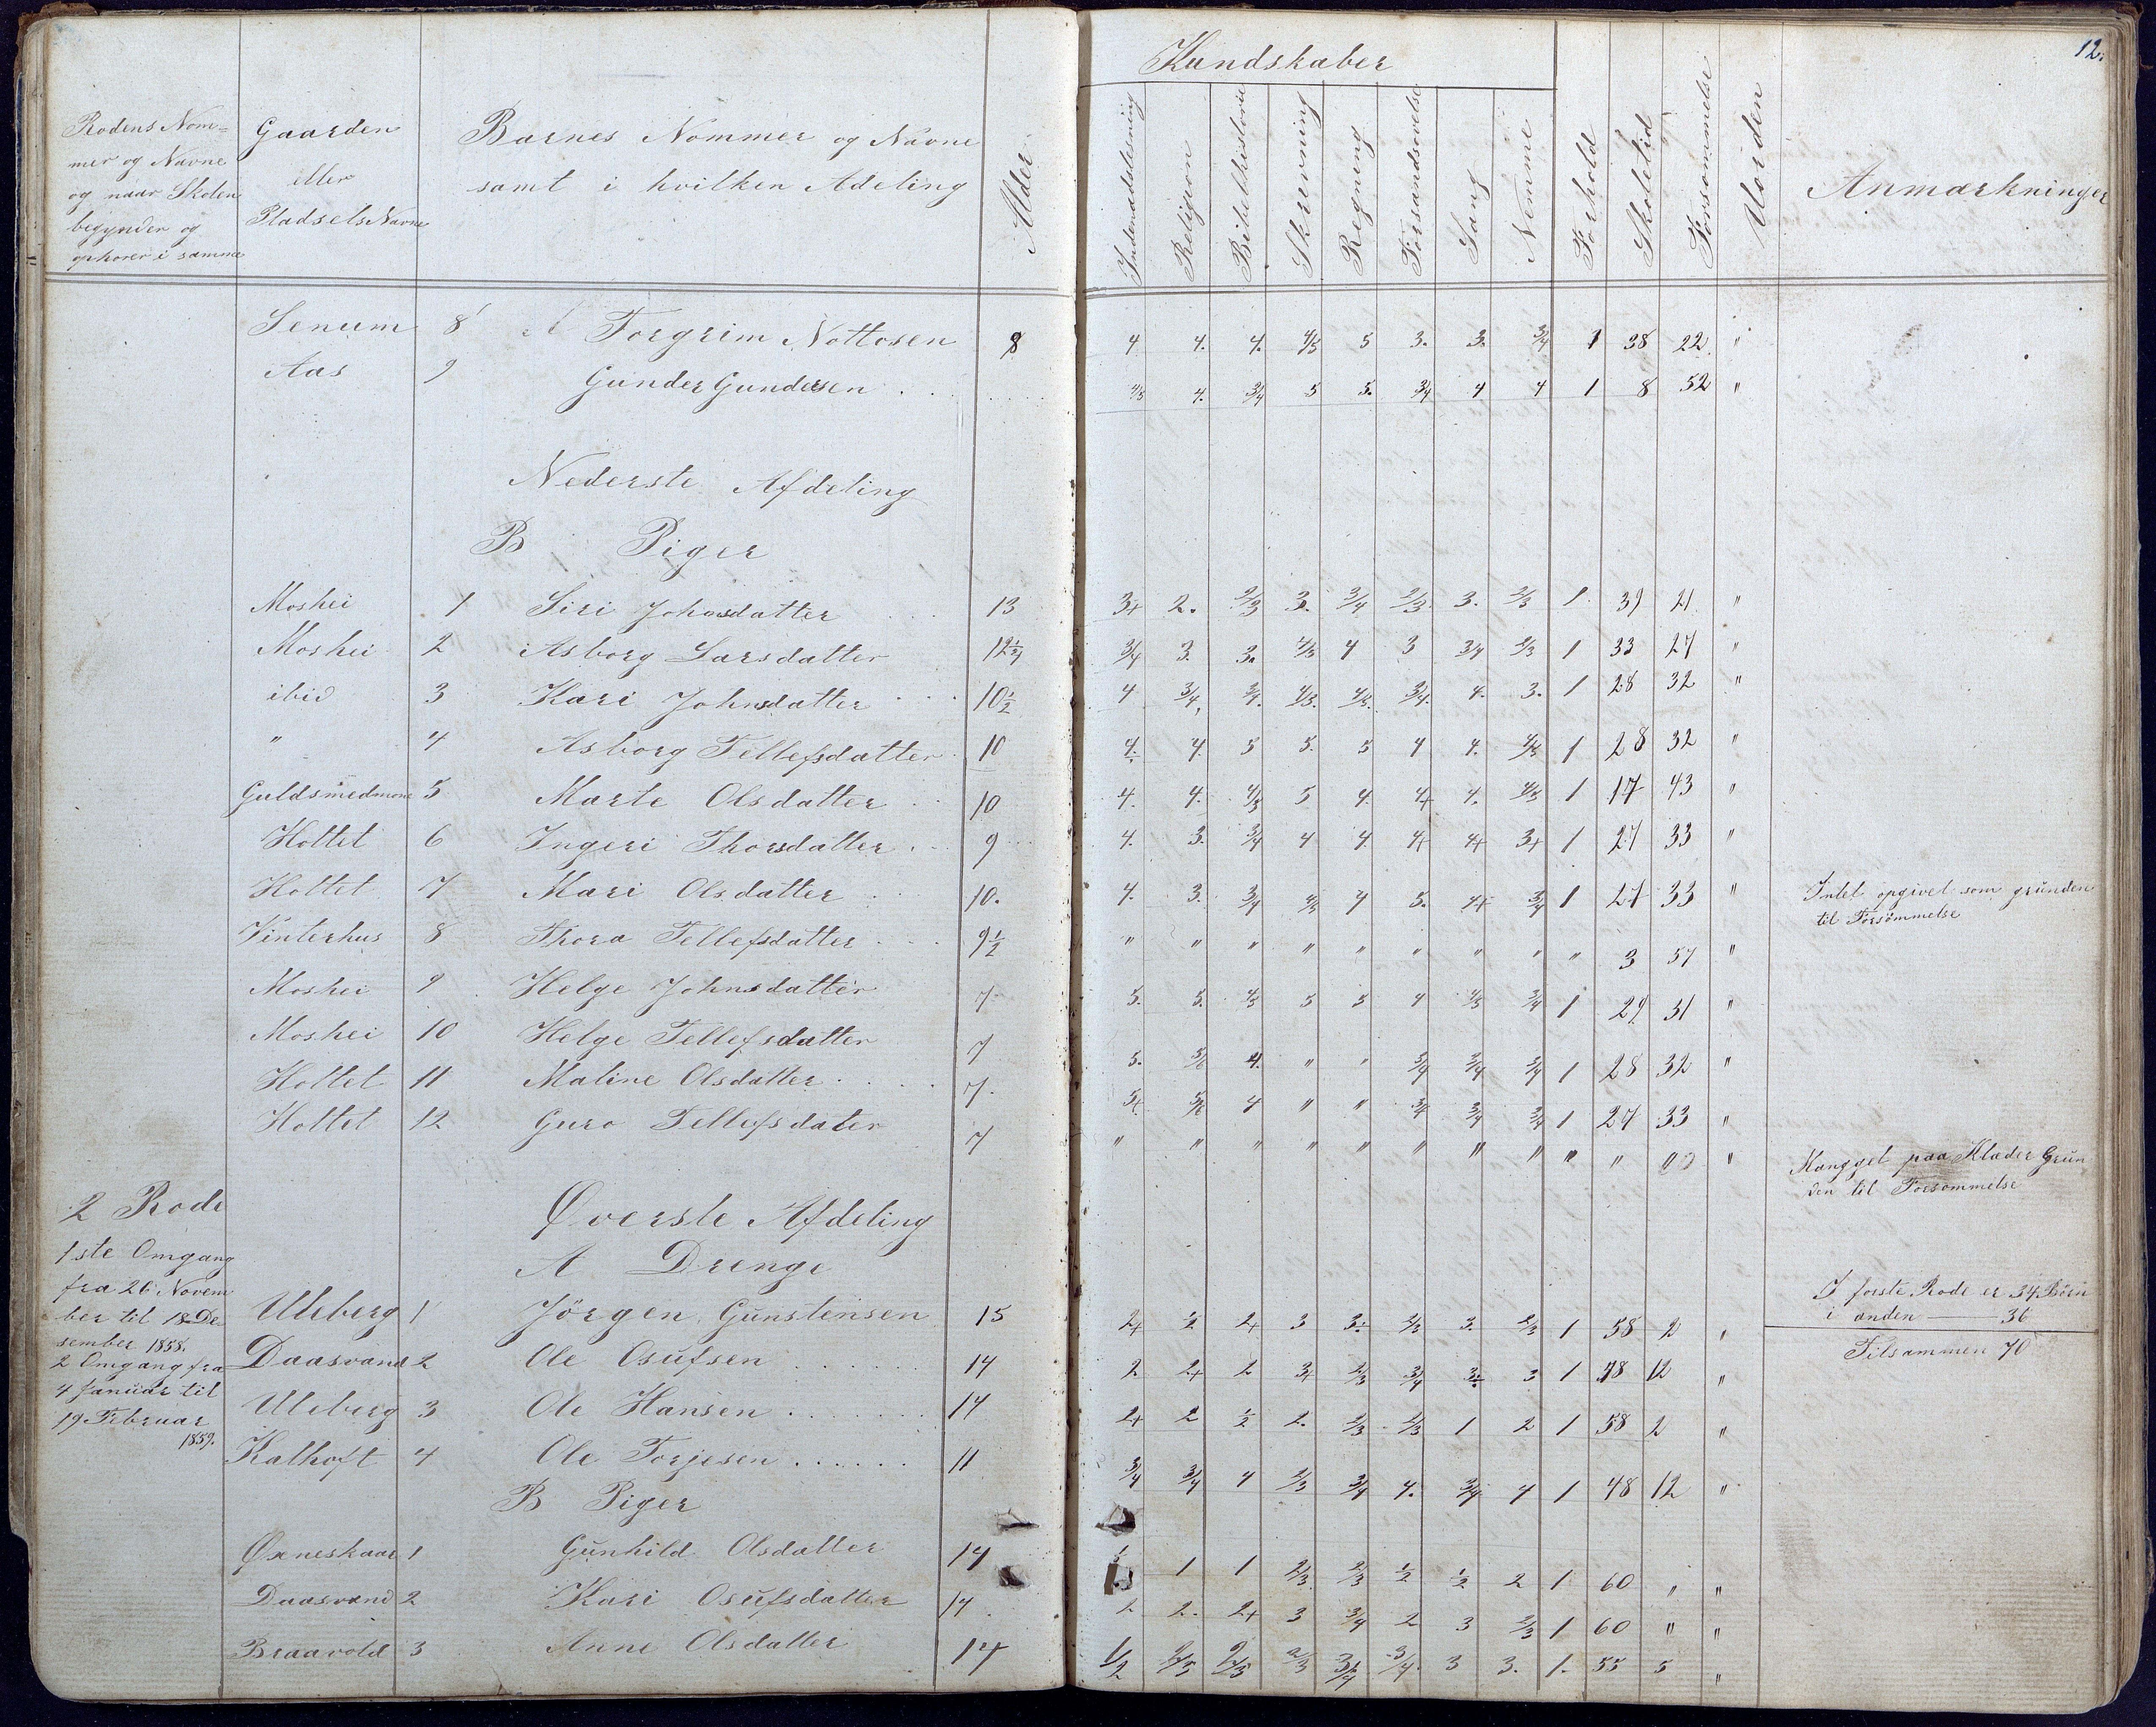 12.
Kundskaber
Rodens Nom=
mer og Navne
og naar Skolen
begynder og
ophorer i samme
Gaarden
eller
Pladsels Navne
Barnes Nommer og Navne
samt i hvilken Adeling
Alder
Indenadslesning
Religion
Bibelhistorie
Skrevning
Regning
Forsandsovelse
Sang
Nemme
Forhold
Skoletid
Forsommelse
Uorden
Anmærkninger
Senum 8 A Torgrim Nottosen 8 4 4. 4. 4/5 5 3. 3. 3/4 1 38 22. "
Aas 9 Gunder Gundersen . . 4/5 4. 3/4 5 5. 3/4 4 4 1 8 52 "
Nederste Afdeling
B Piger
Moshei 1 Siri Johnsdatter 13 3+ 2. 2/3 3. 3/4 2/3 3. 2/3 1 39 21. "
Moshei 2 Asborg Larsdatter 12 1/2 3/4 3. 3. 4/5 4 3 3/4 2/3 1 33 27 "
ibid 3 Kari Johnsdatter 10 1/2 4 3/4 3/4. 4/5. 4/5. 3/4. 4. 3. 1 28 32 "
" 4 Asborg Tellefsdatter 10 4. 4. 5 5. 5 4 4. 4/5 1 28 32 "
Guldsmedmone 5 Marte Olsdatter 10 4. 4. 4/5 5 4. 4+ 4. 4/5 1 17 43 "
Holtet 6 Ingeri Thorsdatter 9 4. 3. 3/4 4 4. 4+ 4+ 3+ 1 27 33 "
Holtet 7 Mari Olsdatter 10. 4. 3. 3/4 4/5 4 5. 4+ 3/4 1 27 33 " Intet opgivet som grunden
til Forsømmelse
Vinterhus 8 Thora Tellefsdatter 9 1/2 " " " " " " " " " 3 57 "
Moshei 9 Helge Johnsdatter 7. 5. 5. 4/5 5 5 4 4/5 3/4 1 29 31 "
Moshei 10 Helge Tellefsdatter 7 5. 5/6 4. " " 3/4 3/4 3/4 1 28 32 "
Holtet 11 Maline Olsdatter 7. 5+ 5/6 4 " " 3/4 3/4 3/4 1 27 33 "
Holtet 12 Guro Tellefsdater 7 " " " " " " " " " " "
Mangget paa Klæder Grun
den til Forsommelse
2 Rode
Øverste Afdeling
1ste Omgang
A Drenge
fra 26 Novem
ber til 18 De
sember 1858.
2 Omgang fra
4 Januar til
19 Februar
1859.
I forste Rode er 34 Børn
i anden — 36
Tilsammen 70
Uleberg 1 Jörgen Gunstensen 15 2+ 1/2 2+ 3 3. 2/3 3. 2/3 1 58 2 "
Daasvand 2 Ole Osufsen 14 2 2+ 2 3+ 2/3 3/4 3. 3 1 48 12 "
Uleberg 3 Ole Hansen 14 2+ 2 1/2 2. 2/3 2/3 1 2 1 58 2 "
Kalhoft 4 Ole Torjesen 11 3/4 3/4 4 2/3 3/4 4. 3/4 4 1 48 12 "
B Piger
Øxneskaar 1 Gunhild Olsdatter 14 1 1 2/3 2/3 1/2 1/2 2 1 60 " "
Daasvand 2 Kari Osufsdatter 14. 2 2. 2+ 3 3/4 2 3 2/3 1 60 " "
Braavold 3 Anne Olsdatter 14 1/2 2/3 2/3 2/3 3/4 3/4. 3 3. 1. 55 5 "